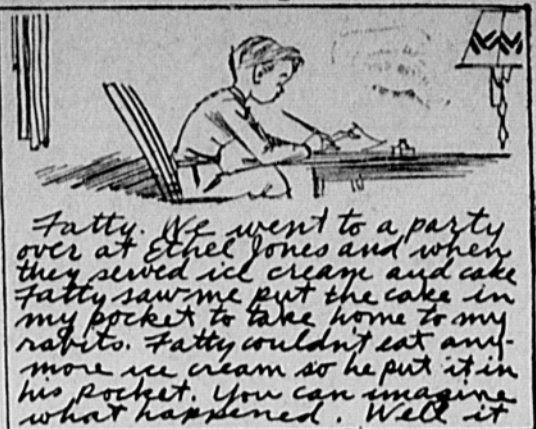 Fatty. We went to a party
over at Ethel Jones and when
they served ice cream and cake
Fatty saw me put the cake in
my pocket to take home to my
rabits. Fatty couldn't eat any-
more ice cream so he put it in
his pocket. You can imagine
what happened. Well it